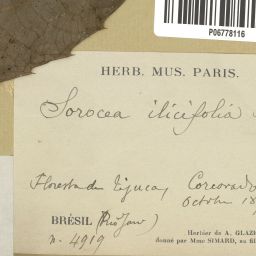 P06778116
HERB. MUS. PARIS.
Sorocea ilicifolia
Floresta da Tijuca, Corcovado
Octobre 18
BRÉSIL (Rio Jan.)
n. 4919
Herbier de A. GLAZI
donné par Mme SIMARD, au